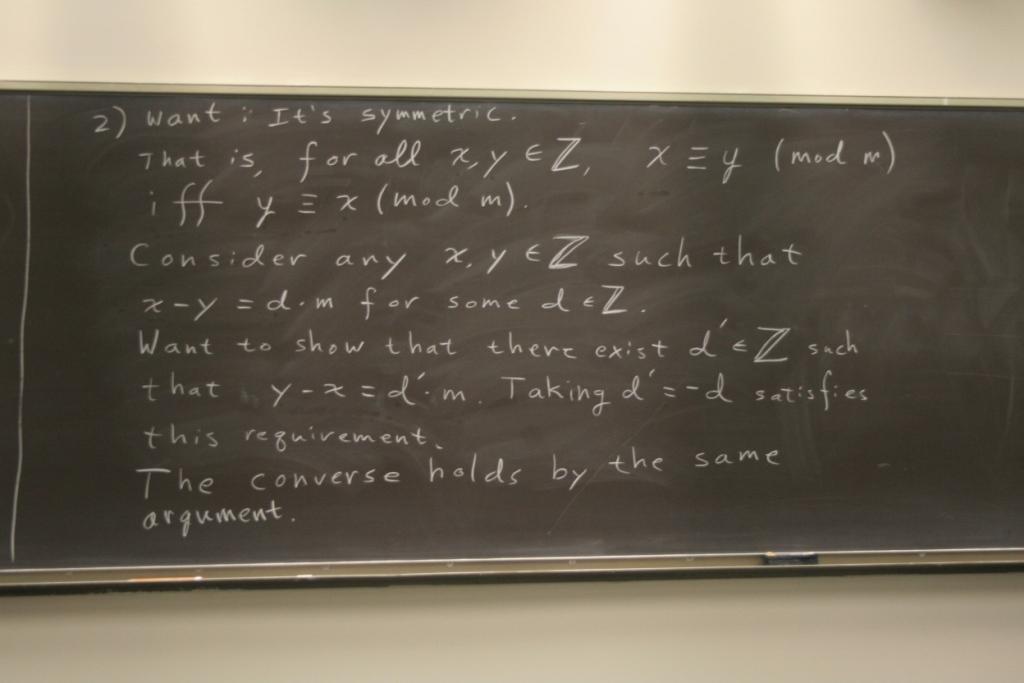 2) Want : It's symmetric.
That is, for all x, y ∈ ℤ, x ≡ y (mod m)
iff y ≡ x (mod m).
Consider any x, y ∈ ℤ such that
x - y = d · m for some d ∈ ℤ.
Want to show that there exist d' ∈ ℤ such
that y - x = d' · m. Taking d' = -d satisfies
this requirement.
The converse holds by the same
argument.